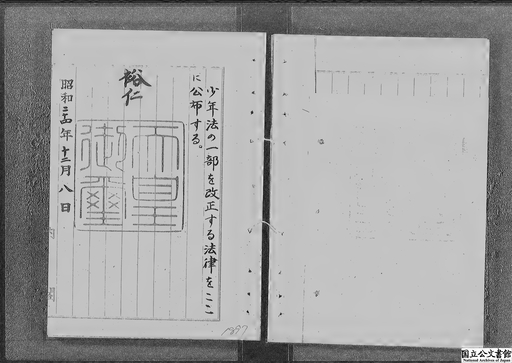 少年法の一部を改正する法律をここ
に公布する。
裕仁
天皇
御璽
昭和二十四年十二月八日
内閣
1897
国立公文書館
National Archives of Japan